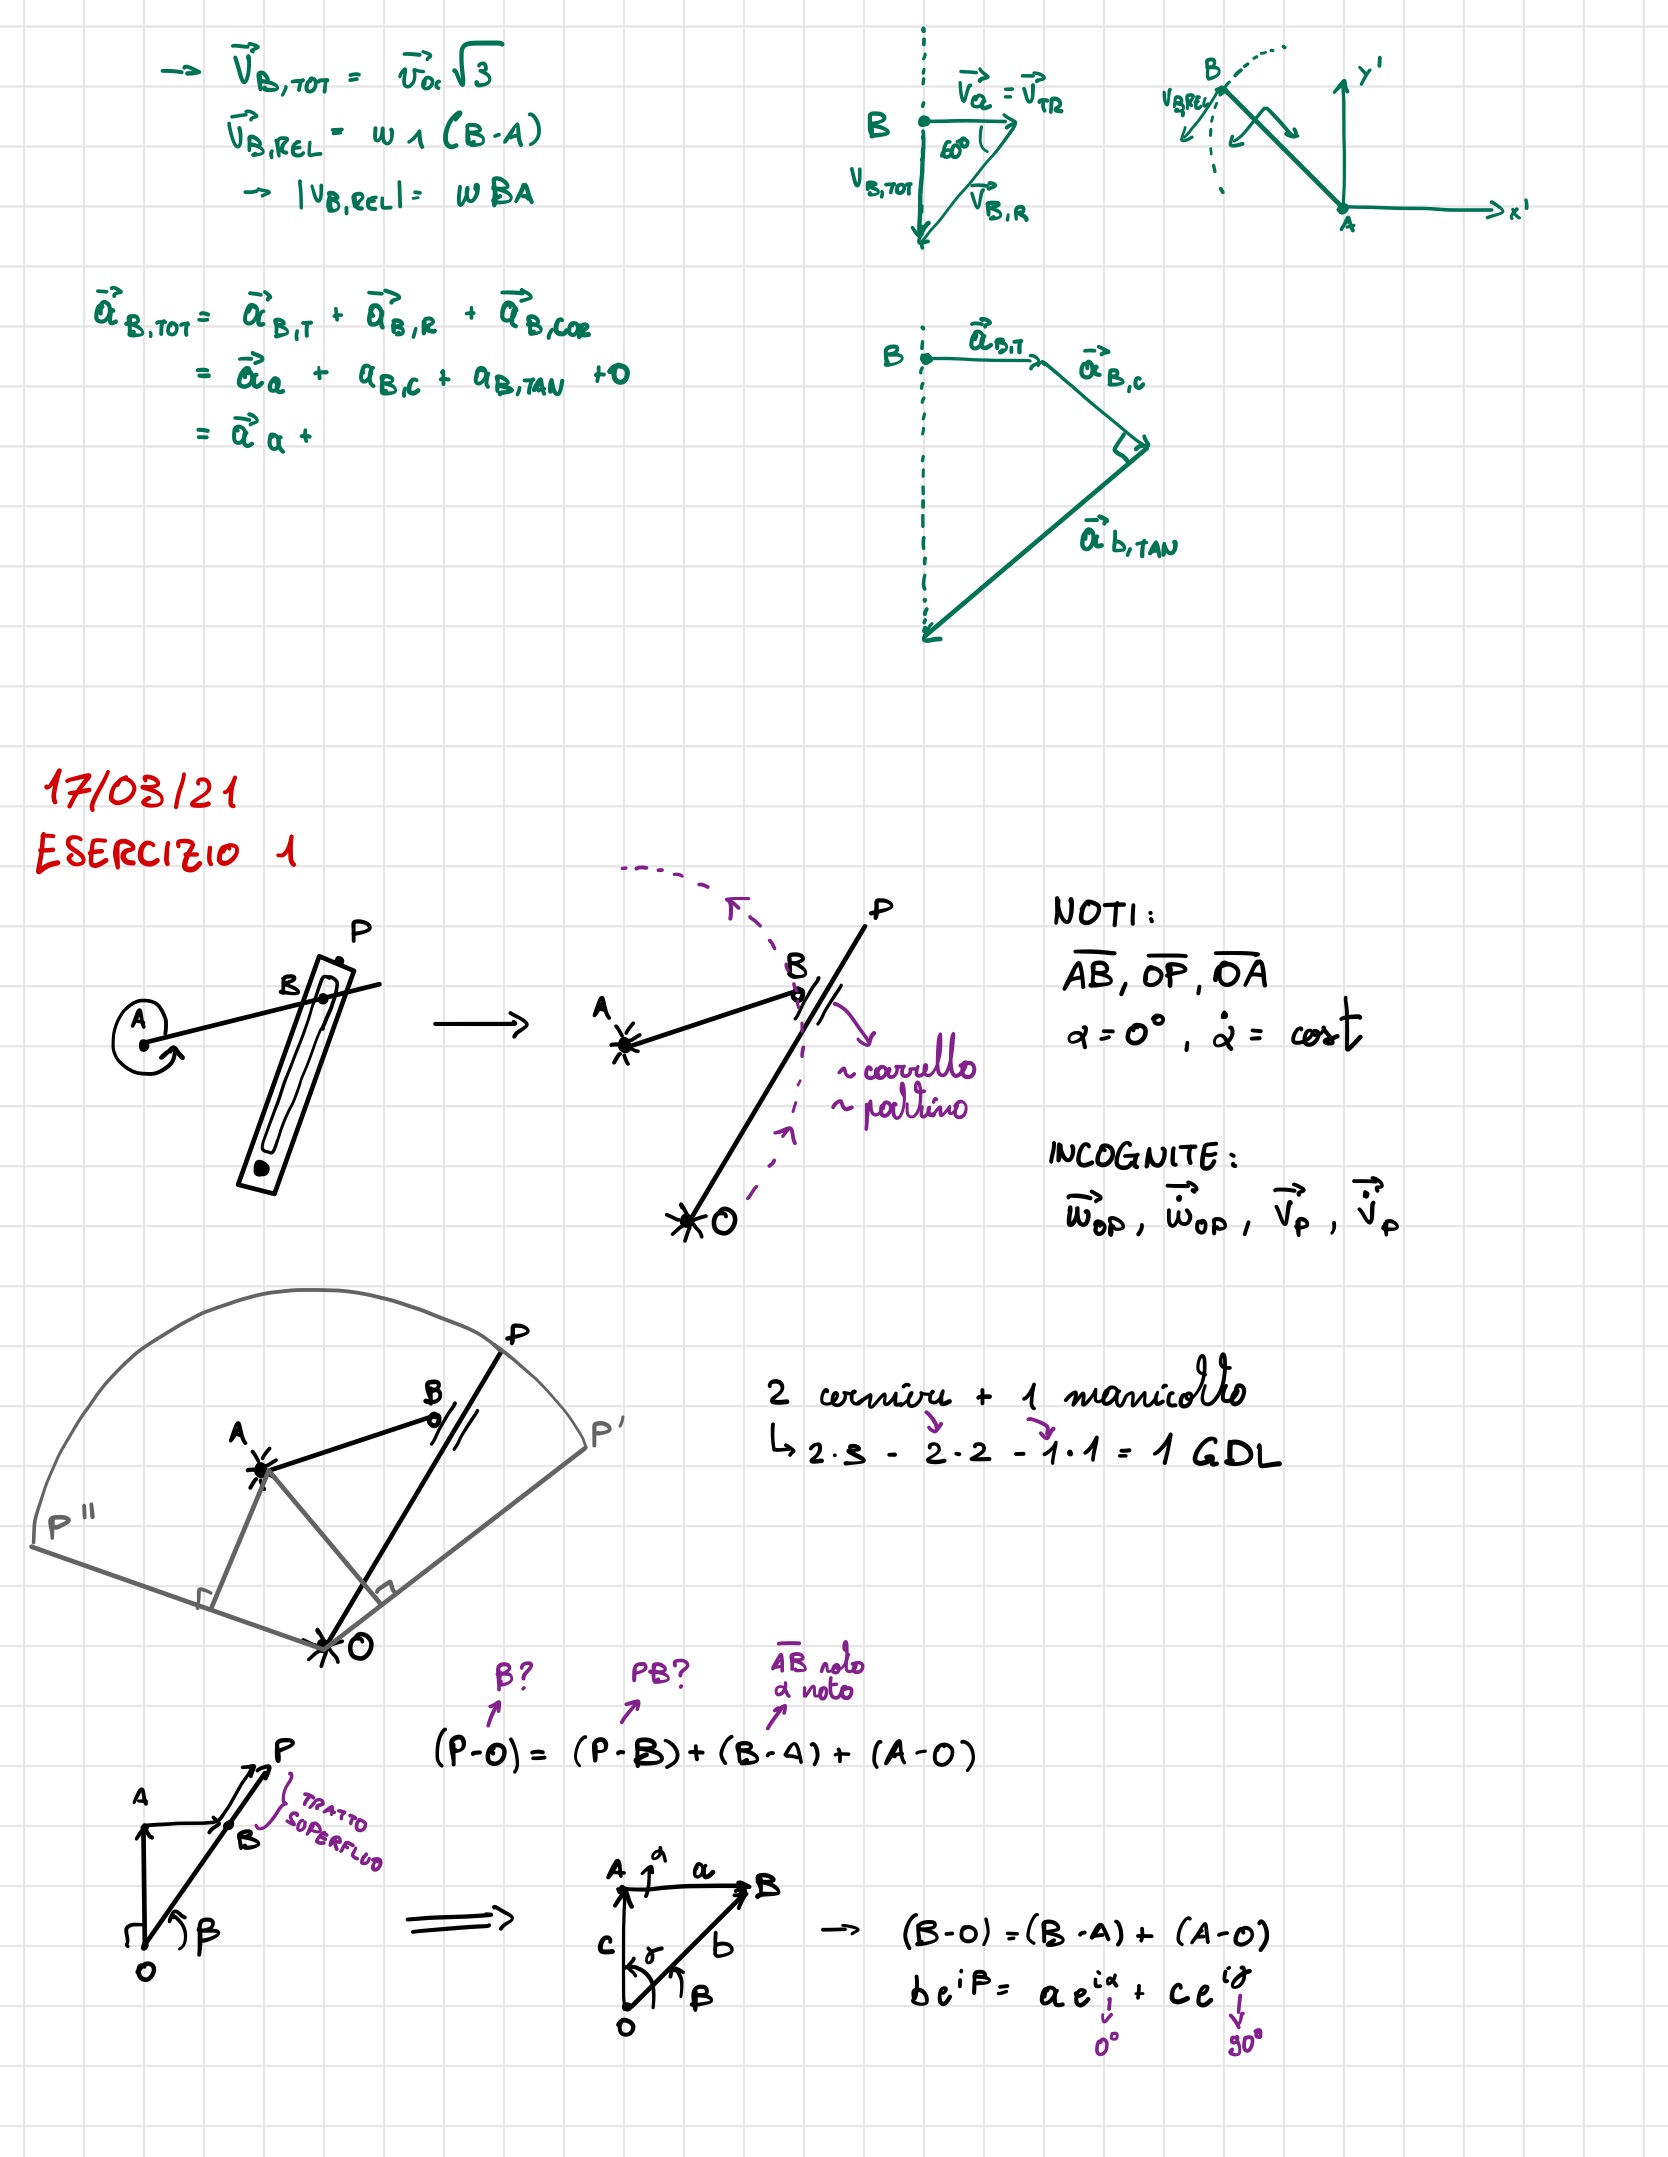 → V⃗_B,TOT = v⃗_a √3
v⃗_B,REL = ω ∧ (B-A)
→ |V_B,REL| = ω BA
B
V⃗_a = V⃗_TR
60°
V_B,TOT
V⃗_B,R
B
V_B,REL
y'
x'
A
a⃗_B,TOT = a⃗_B,T + a⃗_B,R + a⃗_B,COR
= a⃗_a + a_B,C + a_B,TAN + 0
= a⃗_a +
B
a⃗_B,T
a⃗_B,C
a⃗_b,TAN
17/03/21
ESERCIZIO 1
P
B
A
P
B
A
O
~ carrello
~ pattino
NOTI:
A̅B̅, O̅P̅, O̅A̅
α = 0°, α̇ = cost
INCOGNITE:
ω⃗_OP, ω̇⃗_OP, V⃗_P, V̇⃗_P
P
B
A
P'
P"
O
2 cerniere + 1 manicotto
↳ 2·3 - 2·2 - 1·1 = 1 GDL
B?
PB?
A̅B̅ noto
α noto
(P-O) = (P-B) + (B-A) + (A-O)
P
A
B
TRATTO
SUPERFLUO
β
O
A
α
a
B
c
γ
b
β
O
→ (B-O) = (B-A) + (A-O)
b e^iβ = a e^iα + c e^iγ
0°
90°